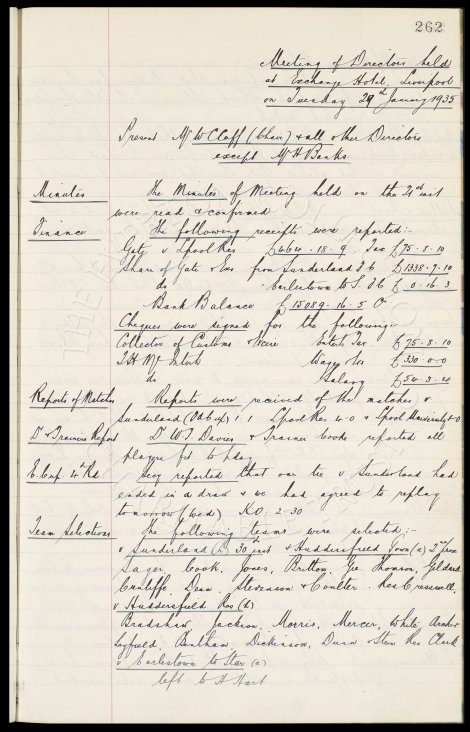 262
Meeting of Directors held
at Exchange Hotel, Liverpool
on Tuesday 29th January 1935
Present Mr W Cuff (Chair) & all other Directors
except Mr H Banks
Minutes The Minutes of Meeting held on the inst
were read & confirmed
Finance The following receipts were reported:-
Gate v Lpool Res £464-18-9 Tax £75-8-10
Share of Gate from Sunderland £1338-7-10
do Earlestown £0-16-3
Bank Balance £15089-16-5
Cheques were signed for the following:-
Collector of Customs & Excise Entert Tax £75-8-10
Wages £330-0-0
do Salary £54-3-4
Reports of Matches Reports were received of the matches v
Sunderland 1-1 Lpool Res 4-0 &
Dr & Trainers Report Dr W.J. Davies & Trainer Cooke reported all
players fit to play
E. Cup. 4th Rd Secy reported that our tie v Sunderland had
ended in a draw & we had agreed to replay
tomorrow (Wed) K.O. 2-30
Team Selections The following teams were selected:-
v Sunderland 30th inst & Huddersfield Town (a) 2nd prox
Sagar, Cook, Jones, Britton, Gee Thomson, Geldard
Cunliffe, Dean, Stevenson & Coulter. Res Cresswell
v Huddersfield Res (h)
Bradshaw, Jackson, Morris, Mercer, White, Archer
Leyfield, Dickinson, Dunn & Stein Res Clark
v Earlestown (a)
left to H Hart